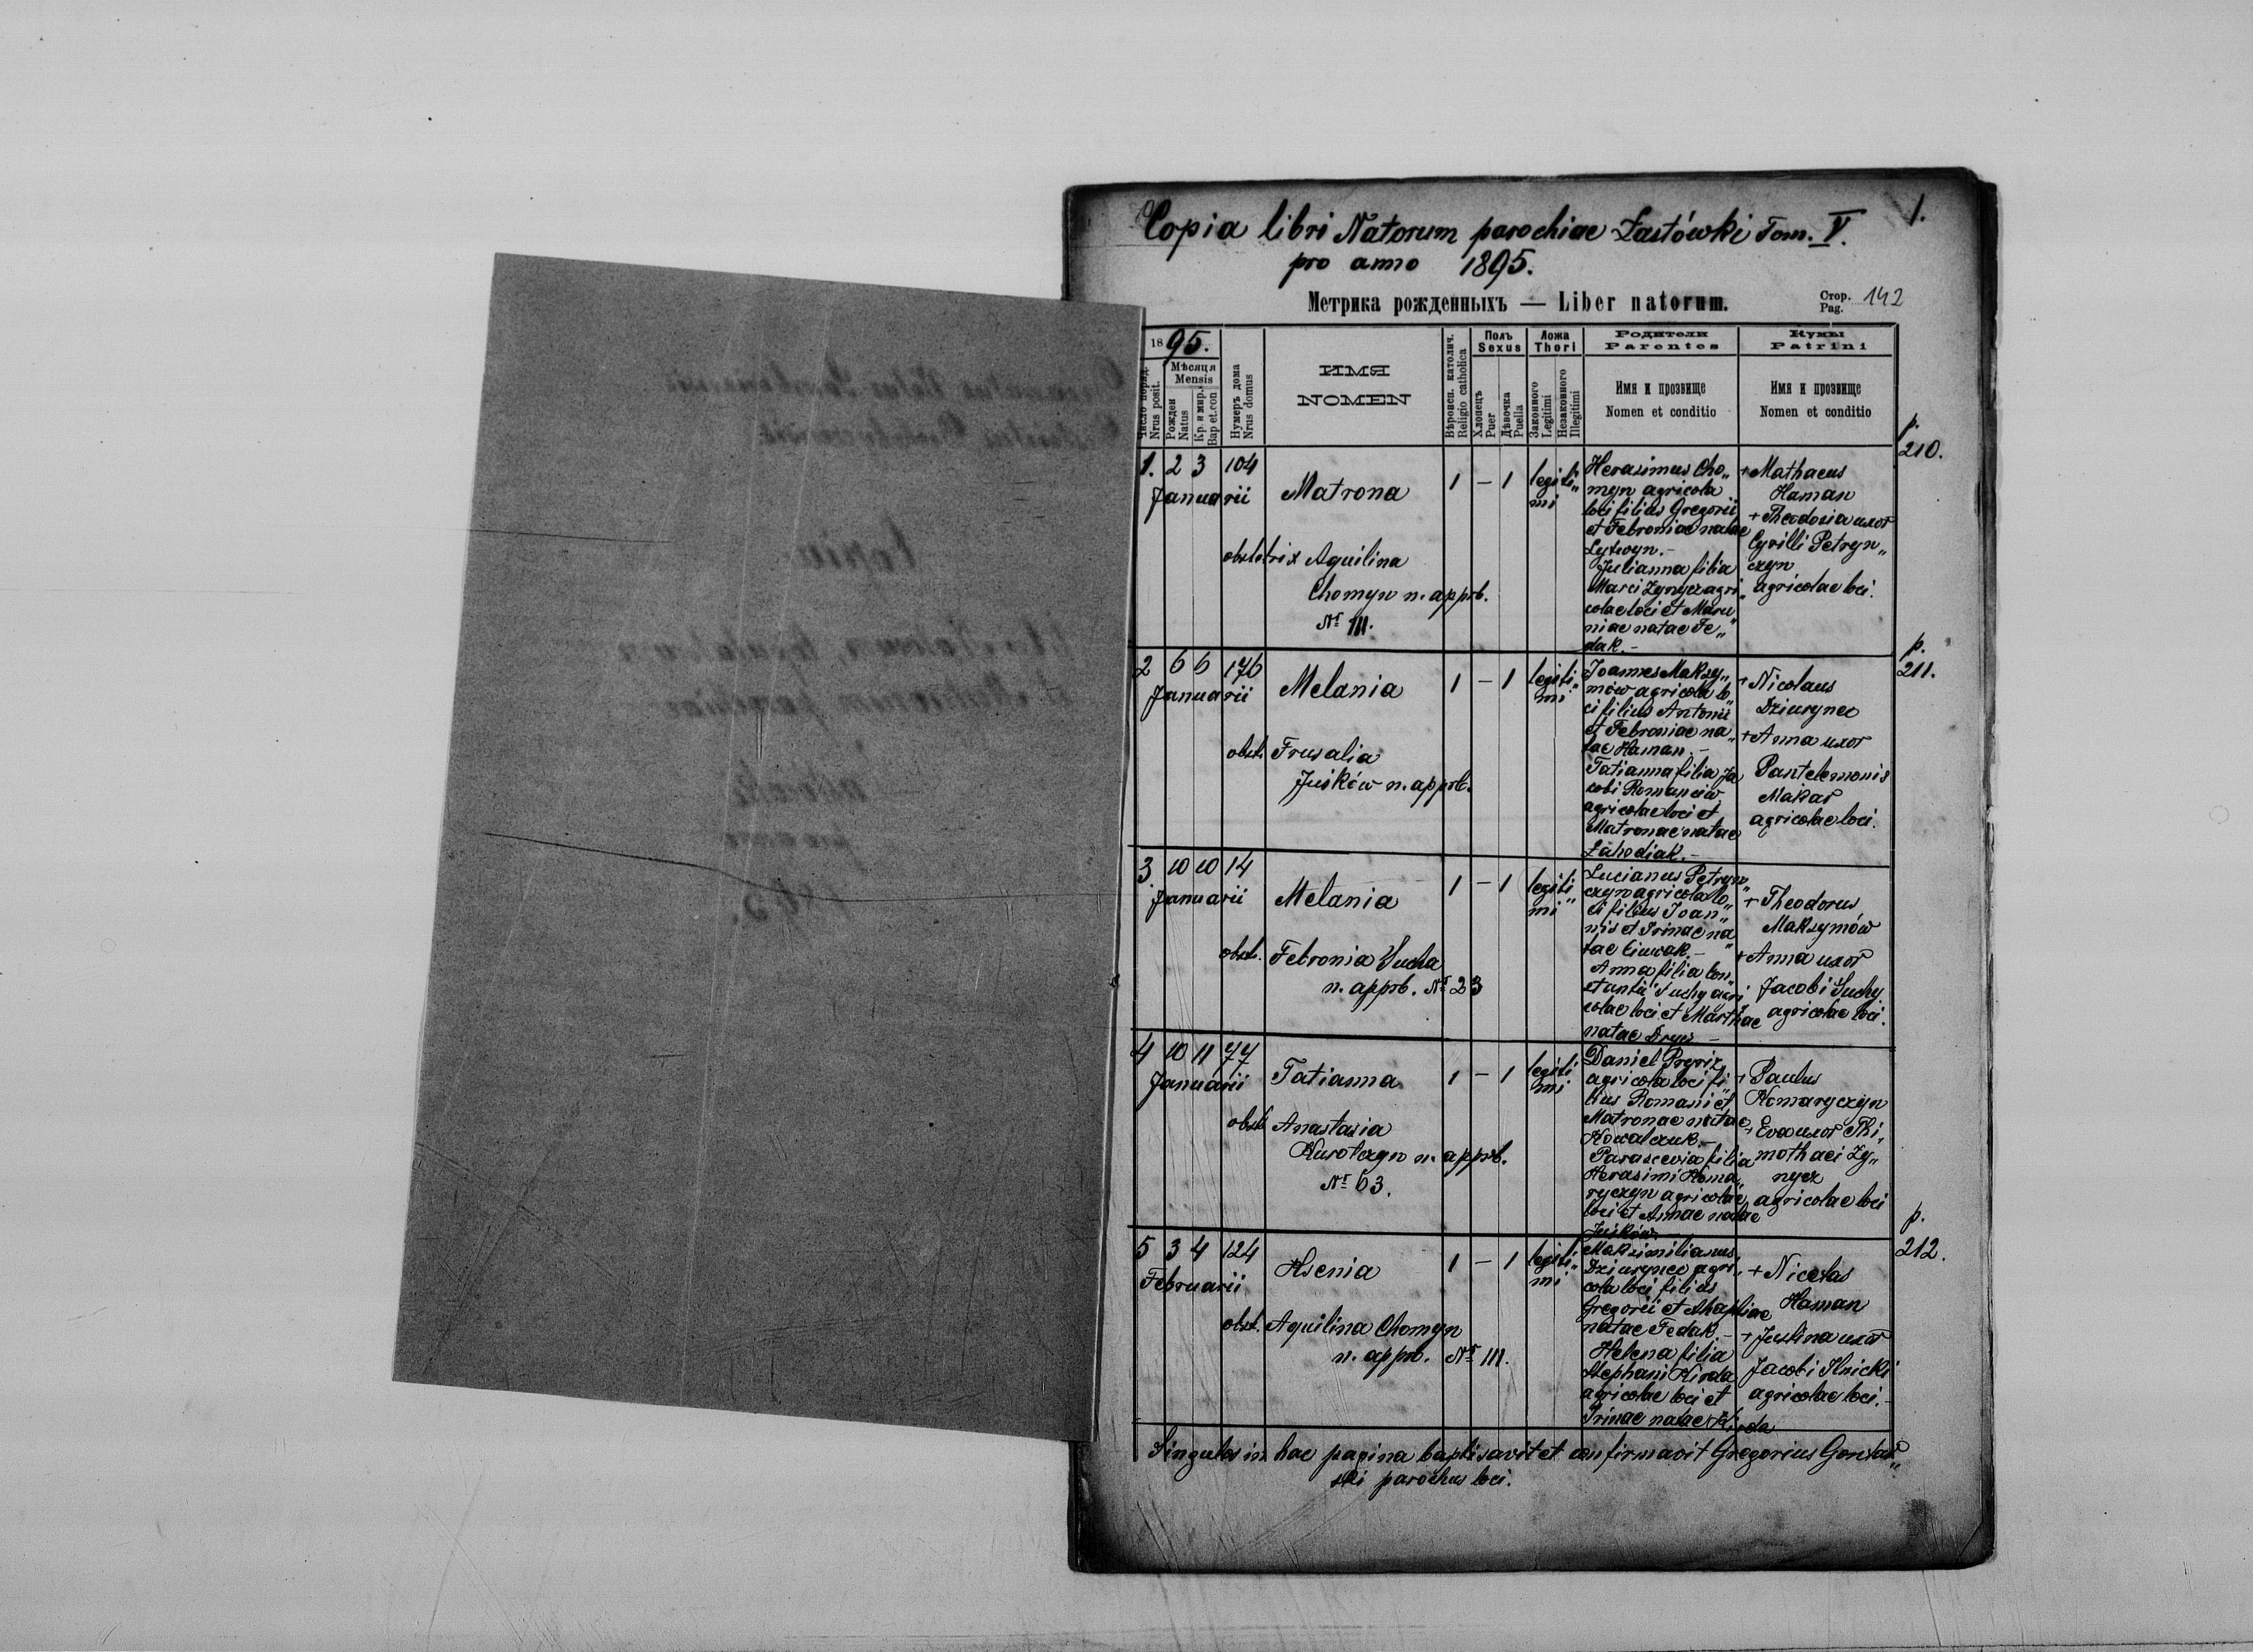 Copia libri Natorum parochiae Łastówki Tom. V.
1.
pro anno 1895.
Метрика рожденныхъ — Liber natorum.
Стор. Pag. 142
1895.
Число поряд. Nrus posit.
Мѣсяця Mensis
Рожден Natus
Кр. и мир. Bap et.con
Нумеръ дома Nrus domus
ИМЯ
NOMEN
Вѣроисп. католич. Religio catholica
Полъ Sexus
Хлопецъ Puer
Дѣвочка Puella
Ложа Thori
Законного Legitimi
Незаконного Illegitimi
Родители Parentes
Имя и прозвище
Nomen et conditio
Кумы Patrini
Имя и прозвище
Nomen et conditio
p.
210.
1. 2 3 104
Januarii
Matrona
1 – 1 legiti„
mi
obstetrix Aquilina
Chomyn n. approb.
Nr 111.
Herasimus Cho„
myn agricola
loci filius Gregorii
et Febroniae natae
Lytwyn.–
Julianna filia
Marci Zynycz agri„
colae loci et Maru„
niae natae Fe„
dak.–
+ Mathaeus
Haman
+ Theodosia uxor
Cyrilli Petryn„
czyn
agricolae loci.
p.
211.
2 6 6 176
Januarii
Melania
1 – 1 legiti„
mi
obst. Frusalia
Juśków n. approb.
Joannes Maksy„
mów agricola lo„
ci filius Antonii
et Febroniae na„
tae Haman.–
Tatianna filia Ja
cobi Romanciw
agricolae loci et
Matronae natae
Łahodiak.–
+ Nicolaus
Dziurynec
+ Anna uxor
Pantelemonis
Makar
agricolae loci.
3. 10 10 14
Januarii
Melania
1 – 1 legiti„
mi
obst. Febronia Sucha
n. approb. Nr 23
Lucianus Petryn„
czyn agricola lo„
ci filius Joan„
nis et Irinae na„
tae
Anna filia Con„
stantii Suchy agri
colae loci et Marthae
natae
+ Theodorus
Maksymów
+ Anna uxor
Jacobi Suchy
agricolae loci.
4 10 11 77
Januarii
Tatianna
1 – 1 legiti
mi
obst. Anastasia
n. approb.
Nr 63.
Daniel
agricola loci fi„
lius Romani et
Matronae natae
Kowalczuk.–
Parascevia filia
Herasimi Koma„
ryczyn agricolae
loci et Annae natae
Juśków.
+ Paulus
Komaryczyn
+ Eva uxor Thi„
mothaei Zy„
nycz
agricolae loci
p.
212.
5 3 4 124
Februarii
Hsenia
1 – 1 legiti„
mi
obst. Aquilina Chomyn
n. approb. Nr 111.
Maksimilianus
Dziurynec agri„
cola loci filius
Gregorii et Ahaphiae
natae Fedak.–
Helena filia
Stephani Kirda
agricolae loci et
Irinae natae Kirda
+ Nicetas
Haman
+ Justina uxor
Jacobi Ilnicki
agricolae loci.–
Singulos in hac pagina baptisavit et confirmavit Gregorius Gontar„
ski parochus loci.